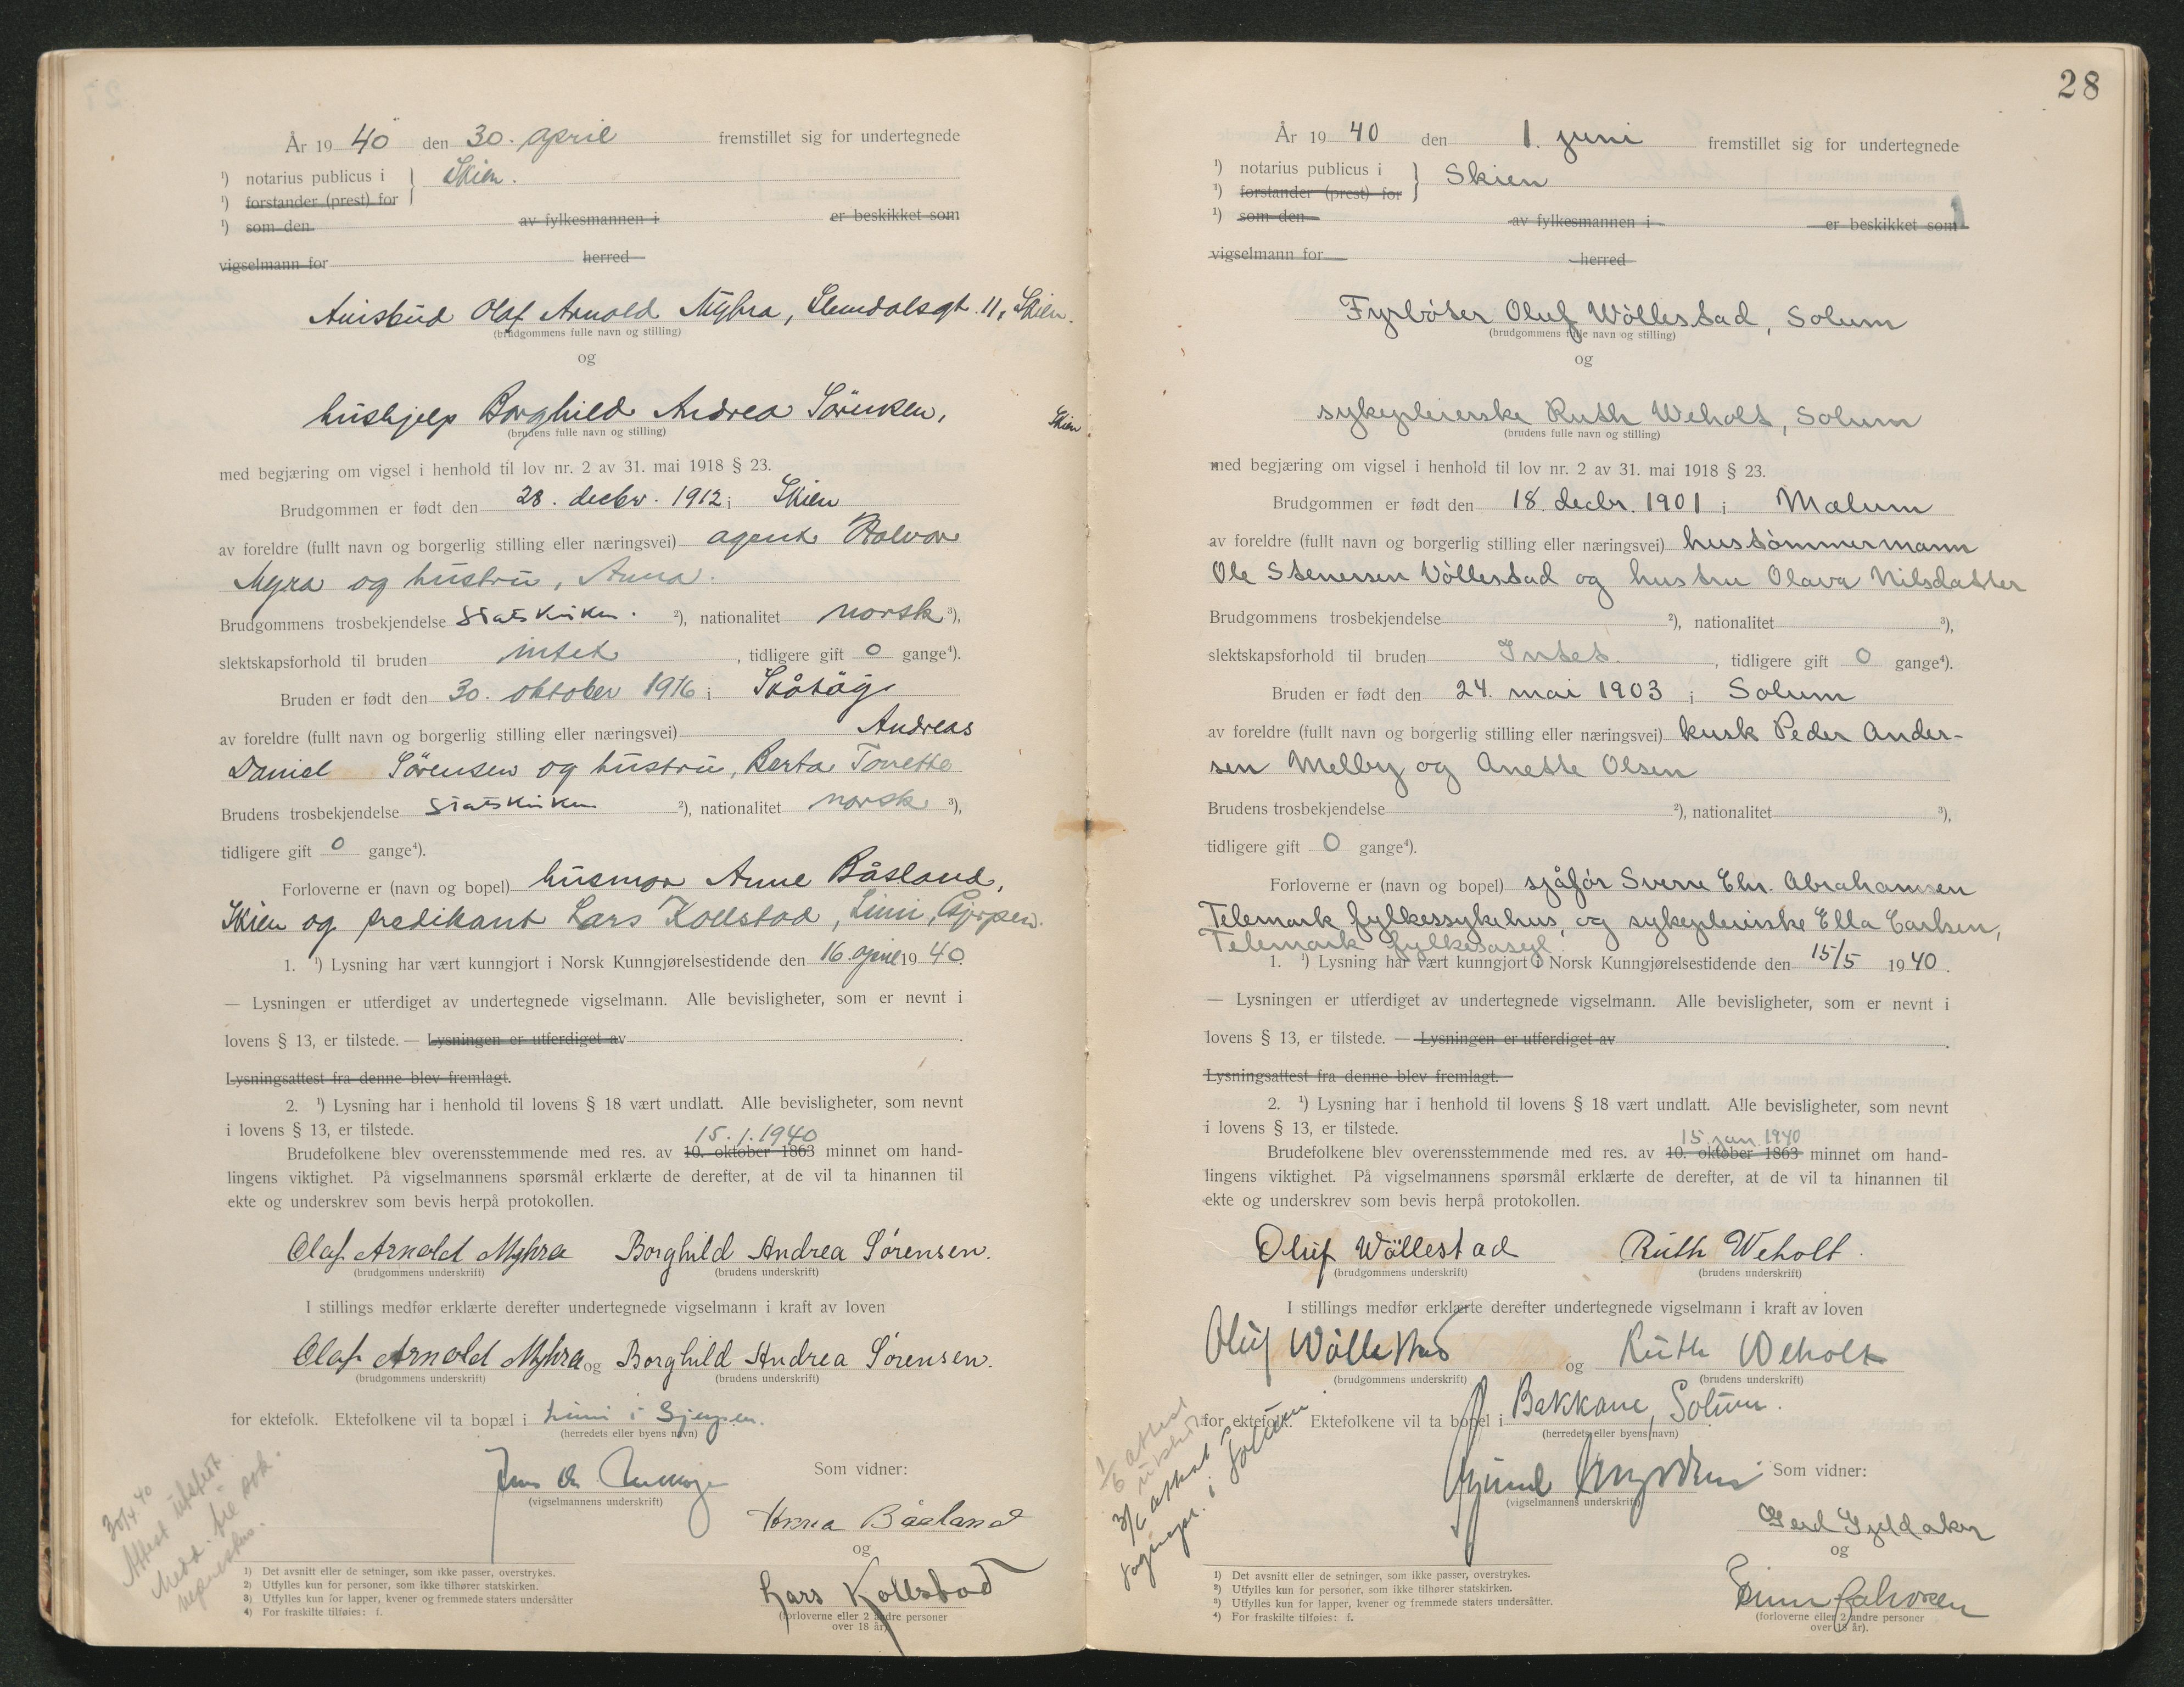 År 19 40 den 30. april fremstillet sig for undertegnede
¹) notarius publicus i } Skien.
¹) forstander (prest) for
¹) som den av fylkesmannen i er beskikket som
vigselmann for herred
Avisbud Olaf Arnold Myhra, Slemdalsgt. 11, Skien.
(brudgommens fulle navn og stilling)
og
hushjelp Borghild Andrea Sörensen, Skien
(brudens fulle navn og stilling)
med begjæring om vigsel i henhold til lov nr. 2 av 31. mai 1918 § 23.
Brudgommen er født den 28. decbr. 1912 i Skien
av foreldre (fullt navn og borgerlig stilling eller næringsvei) agent Halvor
Myra og hustru, Anna.
Brudgommens trosbekjendelse Statskirken. ²), nationalitet norsk ³),
slektskapsforhold til bruden intet , tidligere gift 0 gange⁴).
Bruden er født den 30. oktober 1916 i Skåtöy
av foreldre (fullt navn og borgerlig stilling eller næringsvei) Andreas
Daniel Sörensen og hustru, Berta Tonette
Brudens trosbekjendelse Statskirken ²), nationalitet norsk ³),
tidligere gift 0 gange⁴).
Forloverne er (navn og bopel) husmor Anne Båsland,
Skien og predikant Lars Kollstad, Limi, Gjerpen.
1. ¹) Lysning har vært kunngjort i Norsk Kunngjørelsestidende den 16. april 19 40.
— Lysningen er utferdiget av undertegnede vigselmann. Alle bevisligheter, som er nevnt i
lovens § 13, er tilstede. — Lysningen er utferdiget av .
Lysningsattest fra denne blev fremlagt.
2. ¹) Lysning har i henhold til lovens § 18 vært undlatt. Alle bevisligheter, som nevnt
i lovens § 13, er tilstede.
15. 1. 1940
Brudefolkene blev overensstemmende med res. av 10. oktober 1863 minnet om hand-
lingens viktighet. På vigselmannens spørsmål erklærte de derefter, at de vil ta hinannen til
ekte og underskrev som bevis herpå protokollen.
Olaf. Arnold Myhra Borghild Andrea Sörensen.
(brudgommens underskrift) (brudens underskrift)
I stillings medfør erklærte derefter undertegnede vigselmann i kraft av loven
Olaf Arnold Myhra og Borghild Andrea Sörensen.
(brudgommens underskrift) (brudens underskrift)
for ektefolk. Ektefolkene vil ta bopæl i Limi i Gjerpen.
(herredets eller byens navn)
Som vidner:
(vigselmannens underskrift)
Anna Båsland
og
Lars Kollstad
(forloverne eller 2 andre personer
over 18 år)
30/4 40
Attest utstedt.
1) Det avsnitt eller de setninger, som ikke passer, overstrykes.
2) Utfylles kun for personer, som ikke tilhører statskirken.
3) Utfylles kun for lapper, kvener og fremmede staters undersåtter
4) For fraskilte tilføies: f.
28
År 19 40 den 1. juni fremstillet sig for undertegnede
¹) notarius publicus i } Skien
¹) forstander (prest) for
¹) som den av fylkesmannen i er beskikket som
vigselmann for herred
Fyrböter Oluf Wöllestad, Solum
(brudgommens fulle navn og stilling)
og
sykepleierske Ruth Weholt, Solum
(brudens fulle navn og stilling)
med begjæring om vigsel i henhold til lov nr. 2 av 31. mai 1918 § 23.
Brudgommen er født den 18. decbr. 1901 i Mælum
av foreldre (fullt navn og borgerlig stilling eller næringsvei) hustömmermann
Ole Stenersen Völlestad og hustru Olava Nilsdatter
Brudgommens trosbekjendelse ²), nationalitet ³),
slektskapsforhold til bruden Intet. , tidligere gift 0 gange⁴).
Bruden er født den 24. mai 1903 i Solum
av foreldre (fullt navn og borgerlig stilling eller næringsvei) kusk Peder Ander-
sen Melby og Anette Olsen
Brudens trosbekjendelse ²), nationalitet ³),
tidligere gift 0 gange⁴).
Forloverne er (navn og bopel) sjåför Sverre Chr. Abrahamsen
Telemark fylkessykehus, og sykepleierske Ella Carlsen,
Telemark fylkesasyl.
1. ¹) Lysning har vært kunngjort i Norsk Kunngjørelsestidende den 15/5 19 40.
— Lysningen er utferdiget av undertegnede vigselmann. Alle bevisligheter, som er nevnt i
lovens § 13, er tilstede. — Lysningen er utferdiget av .
Lysningsattest fra denne blev fremlagt.
2. ¹) Lysning har i henhold til lovens § 18 vært undlatt. Alle bevisligheter, som nevnt
i lovens § 13, er tilstede.
15. jan. 1940
Brudefolkene blev overensstemmende med res. av 10. oktober 1863 minnet om hand-
lingens viktighet. På vigselmannens spørsmål erklærte de derefter, at de vil ta hinannen til
ekte og underskrev som bevis herpå protokollen.
Oluf Wöllestad Ruth Weholt.
(brudgommens underskrift) (brudens underskrift)
I stillings medfør erklærte derefter undertegnede vigselmann i kraft av loven
Oluf Wöllestad og Ruth Weholt
(brudgommens underskrift) (brudens underskrift)
for ektefolk. Ektefolkene vil ta bopel i Bakkane, Solum.
(herredets eller byens navn)
Som vidner:
(vigselmannens underskrift)
og
(forloverne eller 2 andre personer
over 18 år).
1/6 attest
3/6 attest
i Solum
1) Det avsnitt eller de setninger, som ikke passer, overstrykes.
²) Utfylles kun for personer, som ikke tilhører statskirken.
³) Utfylles kun for lapper, kvener og fremmede staters undersåtter.
⁴) For fraskilte tilføies: f.